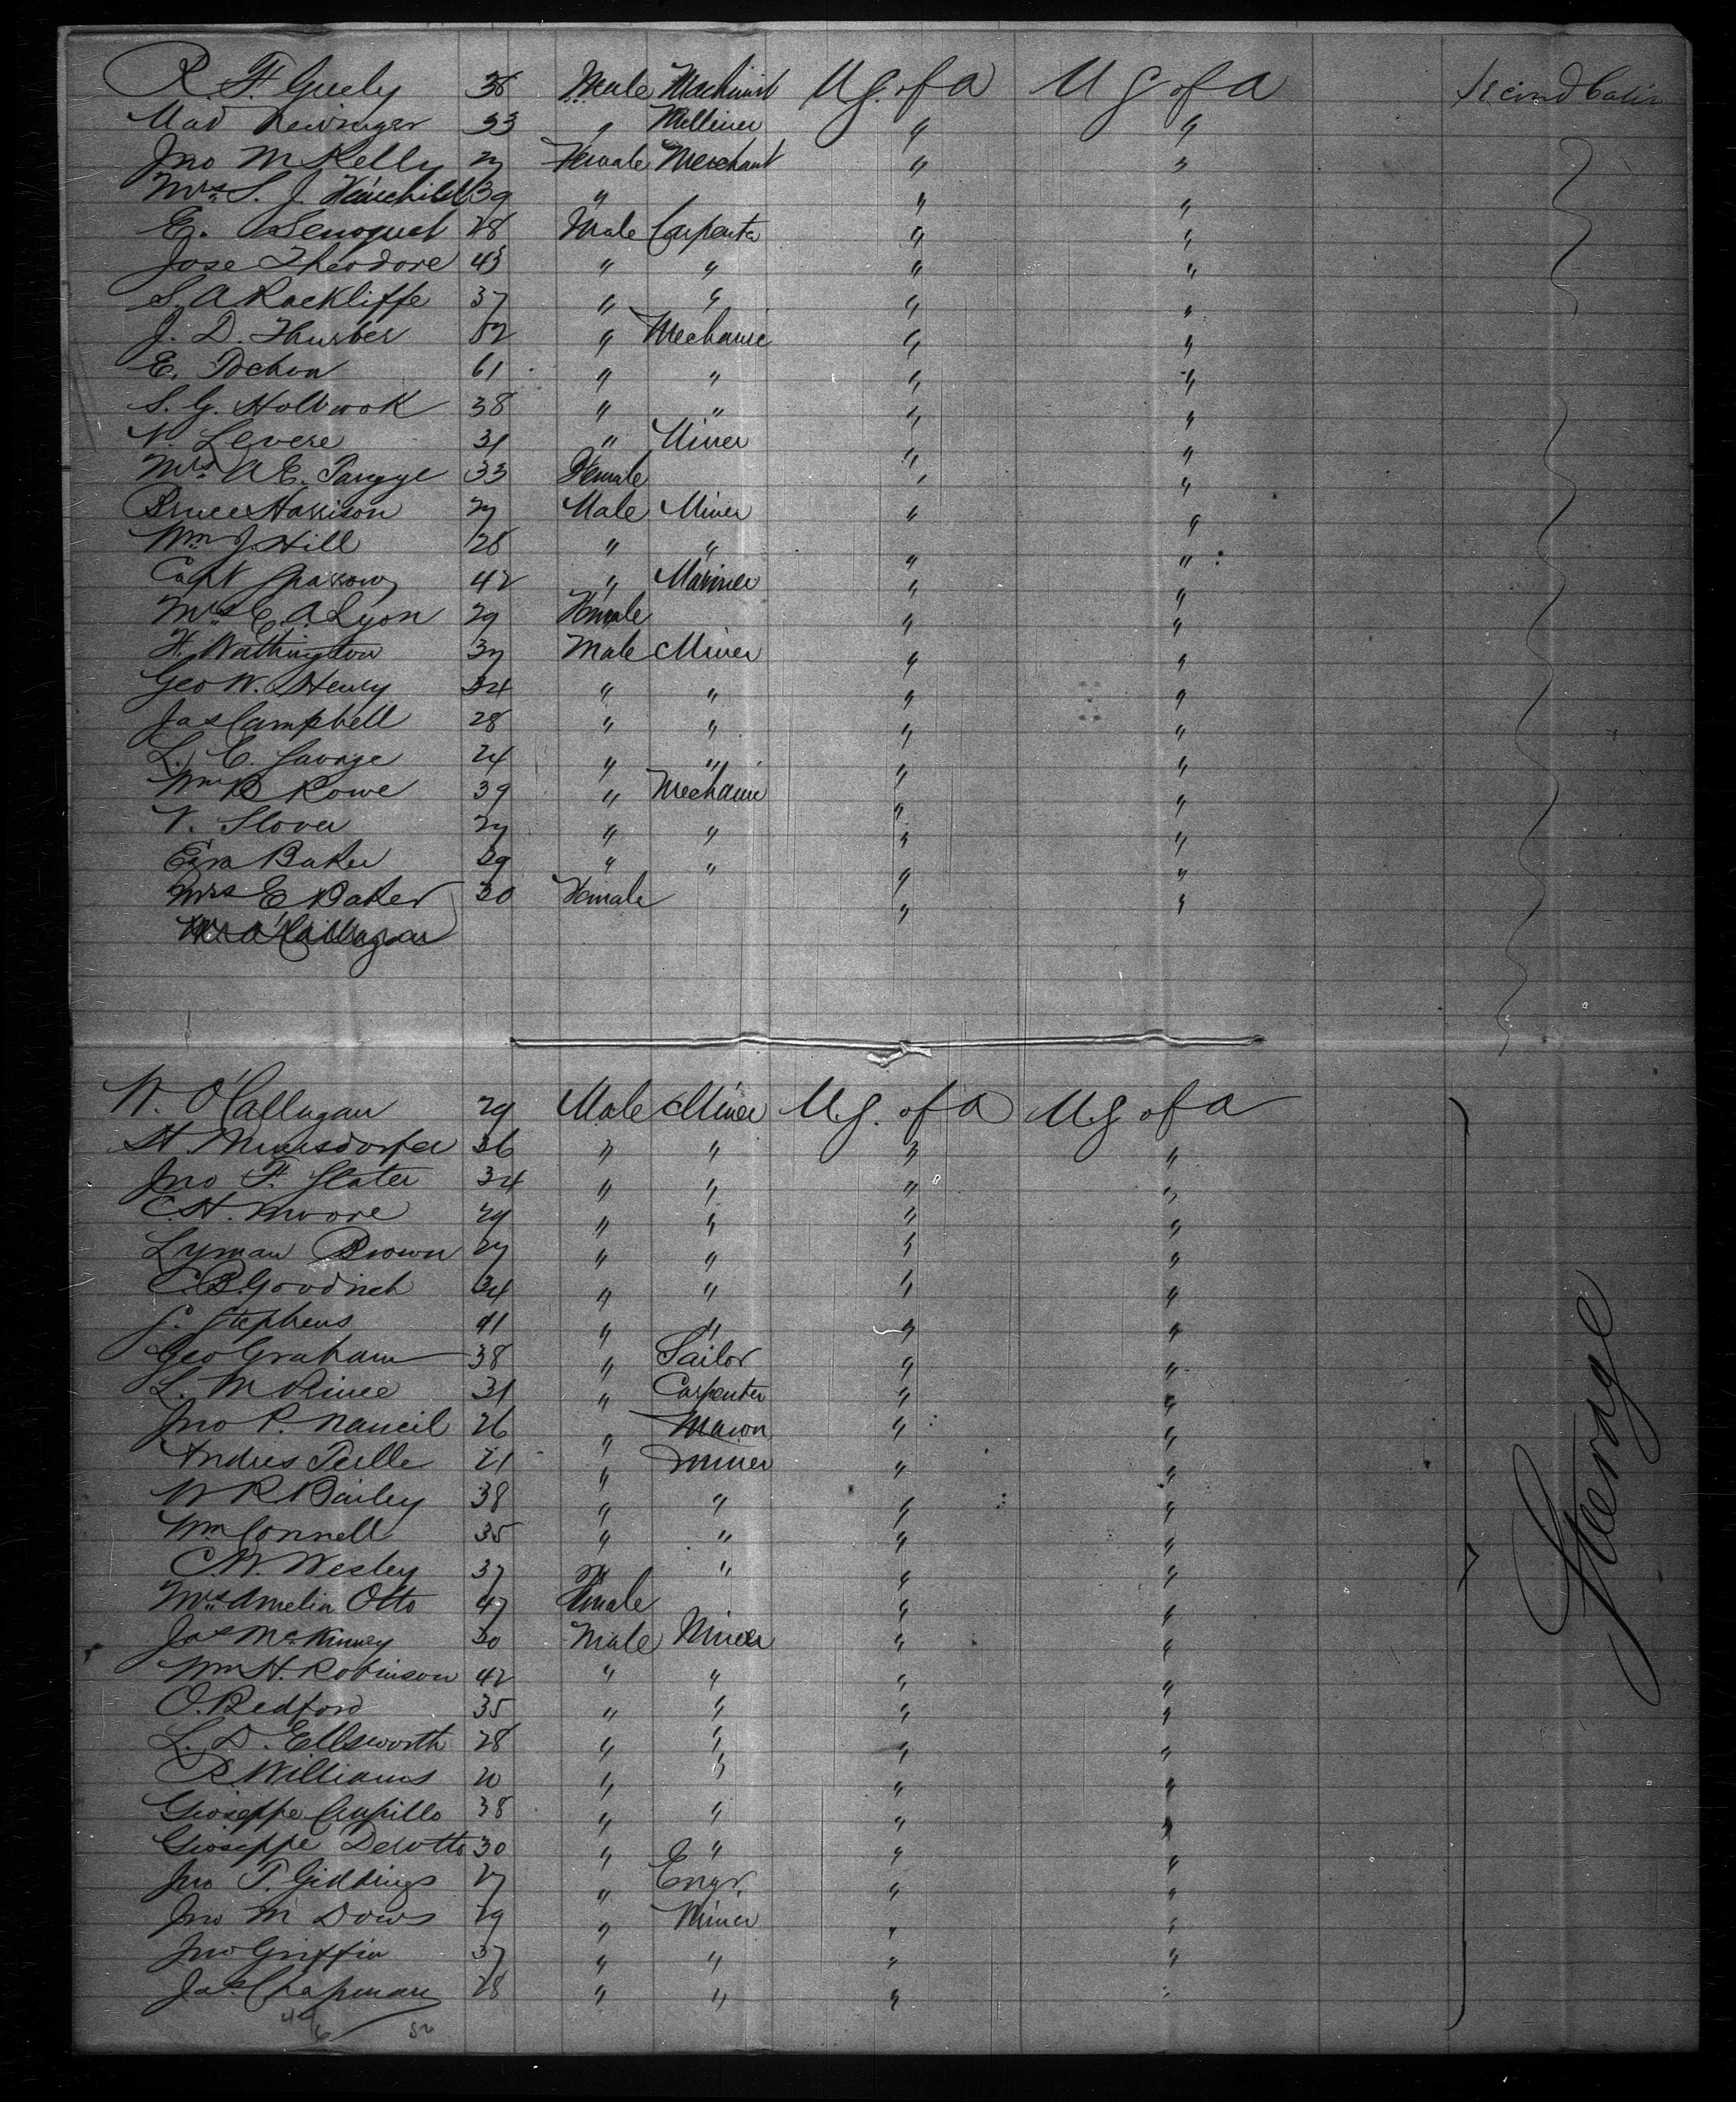 R. F. Guely 38 Male Machinist U S. of A U S of A Second Cabin
Mad Newinger 33 " Milliner " "
Jno M Kelly 27 Female Merchant " "
Mrs S. J. Fairchild 39 " " "
E. Senoquet 28 Male Carpenter " "
Jose Theodore 43 " " " "
S. A Rackliffe 37 " " " "
J. D. Thurber 52 " Mechanic " "
E. Dochon 61 " " " "
S. G. Holbrook 38 " " " "
N. Levere 31 " Miner " "
Mrs A E. 33 Female " "
Bruce Harrison 27 Male Miner " "
Wm J. Hill 28 " " " "
Capt Sparrow 42 " Mariner " "
Mrs E. A. Lyon 29 Female " "
H. Wathington 37 Male Miner " "
Geo W. Henry 34 " " " "
Jas Campbell 28 " " " "
L. E. George 24 " " " "
Wm B Rowe 39 " Mechanic " "
V. Slover 27 " " " "
Ezra Baker 29 " " " "
Mrs E Baker 30 Female " "
W. O'Callagan 29 Male Miner U.S. of A U.S of A
H. Munsdorfer 36 " " " "
Jno F. Slater 34 " " " "
C. H. Moore 29 " " " "
Lyman Brown 27 " " " "
C. B. Goodrich 34 " " " "
S. Stephens 41 " " " "
Geo Graham 38 " Sailor " "
L. M Rinee 31 " Carpenter " "
Jno P. Nancil 26 " Mason " "
Andres Pulle 21 " Miner " "
W R Bailey 38 " " " "
Wm Connell 35 " " " "
C. W. Wesley 37 " " " "
Mrs Amelia Otto 47 Female " "
Jas McKinney 30 Male Miner " "
Wm H. Robinson 42 " " " "
O. Bedford 35 " " " "
L. D. Ellsworth 28 " " " "
R Williams 20 " " " "
Gioseppe Cupillo 38 " " " "
Gioseppe Devotto 30 " " " "
Jno T. Giddings 27 " Engr. " "
Jno M Dows 29 " Miner " "
Jno Griffin 37 " " " "
Jas Chapman 28 " " " "
Steerage